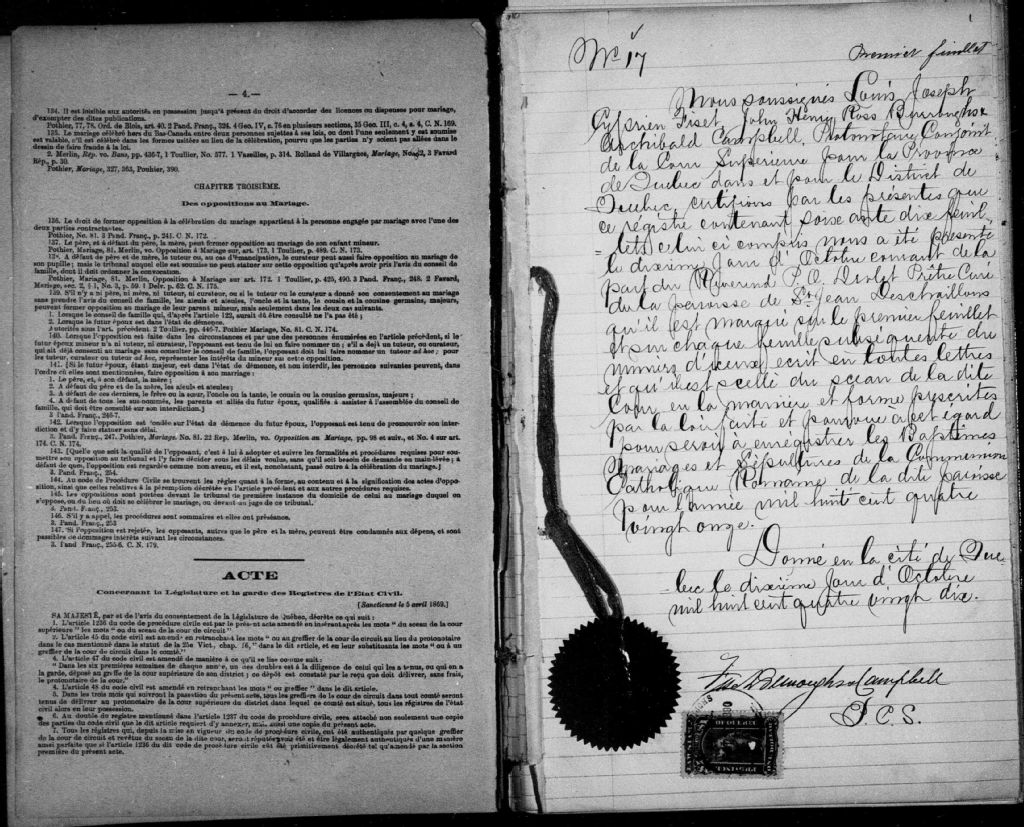 — 4. —
134. Il est loisible aux autorités, en possession jusqu'à présent du droit d'accorder des licences ou dispenses pour mariage,
d'exempter des dites publications.
Pothier, 77, 78. Ord. de Blois, art. 40. 2 Pand. Franç., 324. 4 Geo. IV, c. 76 en plusieurs sections, 35 Geo. III, c. 4, s. 4, C. N. 169.
135. Le mariage célébré hors du Bas-Canada entre deux personnes sujettes à ses lois, ou dont l'une seulement y est soumise
est valable, s'il est célébré dans les formes usitées au lieu de la célébration, pourvu que les parties n'y soient pas allées dans le
dessein de faire fraude à la loi.
2. Merlin, Rép. vo. Bans, pp. 436-7, 1 Toullier, No. 577. 1 Vazeilles, p. 314. Rolland de Villargues, Mariage, No. 2, 3 Favard
Rép., p. 30.
Pothier, Mariage, 327, 363, Pouhier, 390.
CHAPITRE TROISIÈME.
Des oppositions au Mariage.
136. Le droit de former opposition à la célébration du mariage appartient à la personne engagée par mariage avec l'une des
deux parties contractantes.
Pothier, No. 81. 3 Pand. Franç., p. 241. C. N. 172.
137. Le père, et à défaut du père, la mère, peut former opposition au mariage de son enfant mineur.
Pothier, Mariage, 81. Merlin, vo. Opposition à Mariage sur art. 173, 1 Toullier, p. 489. C. N. 173.
A défaut de père et de mère, le tuteur ou, au cas d'émancipation, le curateur peut aussi faire opposition au mariage de
son pupille; mais le tribunal auquel elle est soumise ne peut statuer sur cette opposition qu'après avoir pris l'avis du conseil de
famille, dont il doit ordonner la convocation.
Pothier, Mariage, 81, Merlin, Opposition à Mariage sur art. 172. 1 Toullier, p. 425, 490. 3 Pand. Franç., 248. 2 Favard,
Mariage, sec. 2, § 1, No. 3, p. 59. 1 Delv. p. 62. C. N. 175.
139. S'il n'y a ni père, ni mère, ni tuteur, ni curateur, ou si le tuteur ou le curateur a donné son consentement au mariage
sans prendre l'avis du conseil de famille, les aïeuls et aïeules, l'oncle et la tante, le cousin et la cousine germains, majeurs,
peuvent former opposition au mariage de leur parent mineur, mais seulement dans les deux cas suivants.
1. Lorsque le conseil de famille qui, d'après l'article 122, aurait dû être consulté ne l'a pas été;
2. Lorsque le futur époux est dans l'état de démence.
Autorités sous l'art. précédent 2 Toullier, pp. 446-7. Pothier Mariage, No. 81. C. N. 174.
140. Lorsque l'opposition est faite dans les circonstances et par une des personnes énumérées en l'article précédent, si le
futur époux mineur n'a ni tuteur, ni curateur, l'opposant est tenu de lui en faire nommer un; s'il a déjà un tuteur, ou curateur,
qui ait déjà consenti au mariage sans consulter le conseil de famille, l'opposant doit lui faire nommer un tuteur ad hoc; pour
les tuteur, curateur ou tuteur ad hoc, représenter les intérêts du mineur sur cette opposition.
141. [Si le futur époux, étant majeur, est dans l'état de démence, et non interdit, les personnes suivantes peuvent, dans
l'ordre où elles sont mentionnées, faire opposition à son mariage:
1. Le père, et, à son défaut, la mère;
2. A défaut du père et de la mère, les aïeuls et aïeules;
3. A défaut de ces derniers, le frère ou la sœur, l'oncle ou la tante, le cousin ou la cousine germains, majeurs;
4. A défaut de tous les sus-nommés, les parents et alliés du futur époux, qualifiés à assister à l'assemblée du conseil de
famille, qui doit être consulté sur son interdiction.]
3 Pand. Franç., 246-7.
142. Lorsque l'opposition est fondée sur l'état de démence du futur époux, l'opposant est tenu de promouvoir son inter-
diction et d'y faire statuer sans délai.
3. Pand. Franç., 247. Pothier, Mariage. No. 81. 22 Rep. Merlin, vo. Opposition au Mariage, pp. 98 et suiv., et No. 4 sur art.
174. C. N. 174.
143. [Quelle que soit la qualité de l'opposant, c'est à lui à adopter et suivre les formalités et procédures requises pour sou-
mettre son opposition au tribunal et l'y faire décider sous les délais voulus, sans qu'il soit besoin de demande en main-levée; à
défaut de quoi, l'opposition est regardée comme non avenue, et il est, nonobstant, passé outre à la célébration du mariage.]
3. Pand. Franç., 254.
144. Au code de Procédure Civile se trouvent les règles quant à la forme, au contenu et à la signification des actes d'oppo-
sition, ainsi que celles relatives à la péremption décrétée en l'article précédent et aux autres procédures requises.
145. Les oppositions sont portées devant le tribunal de première instance du domicile de celui au mariage duquel on
s'oppose, ou du lieu où doit se célébrer le mariage, ou devant un juge de ce tribunal.
3. Pand. Franç., 253.
146. S'il y a appel, les procédures sont sommaires et elles ont préséance.
3. Pand. Franç., 253
147. Si l'opposition est rejetée, les opposants, autres que le père et la mère, peuvent être condamnés aux dépens, et sont
passibles de dommages-intérêts suivant les circonstances.
3. Pand Franç., 255-6. C. N. 179.
ACTE
Concernant la Législature et la garde des Registres de l'Etat Civil.
[Sanctionné le 5 avril 1869.]
SA MAJESTÉ, par et de l'avis du consentement de la Législature de Québec, décrète ce qui suit:
1. L'article 1236 du code de procédure civile est par le présent acte amendé en insérant après les mots "du sceau de la cour
supérieure" les mots "ou du sceau de la cour de circuit"
2. L'article 45 du code civil est amendé en retranchant les mots "ou au greffier de la cour de circuit au lieu du protonotaire
dans le cas mentionné dans le statut de la 25e Vict., chap. 16," dans le dit article, et en leur substituant les mots "ou à un
greffier de la cour de circuit dans le comté."
4. L'article 47 du code civil est amendé de manière à ce qu'il se lise comme suit:
"Dans les six premières semaines de chaque année, un des doubles est à la diligence de celui qui les a tenus, ou qui en a
la garde, déposé au greffe de la cour supérieure de son district; ce dépôt est constaté par le reçu que doit délivrer, sans frais,
le protonotaire de la cour."
4. L'article 48 du code civil est amendé en retranchant les mots "ou greffier" dans le dit article.
5. Dans les trois mois qui suivront la passation du présent acte, tous les greffiers de la cour de circuit dans tout comté seront
tenus de délivrer au protonotaire de la cour supérieure du district dans lequel ce comté est situé, tous les registres de l'état
civil alors en leur possession.
6. Au double du registre mentionné dans l'article 1237 du code de procédure civile, sera attaché non seulement une copie
des parties du code civil que le dit article requiert d'y annexer, mais aussi une copie du présent acte.
7. Tous les registres qui, depuis la mise en vigueur du code de procédure civile, ont été authentiqués par quelque greffier
de la cour de circuit et revêtus du sceau de la dite cour, seront réputés avoir été et être légalement authentiqués d'une manière
aussi parfaite que si l'article 1236 du dit code de procédure civile eût été primitivement décrété tel qu'amendé par la section
première du présent acte.
1
No 17
Premier feuillet
Nous soussignés Louis Joseph
Cyprien Fiset, John Henry Ross Burroughs &
Archibald Campbell, Protonotaire Conjoint
de la Cour Supérieure pour la Province
de Quebec dans et pour le District de
Quebec, certifions par les présentes que
ce régistre contenant soixante dix feuil-
lets celui ci compris nous a été présenté
le dixième jour d'Octobre courant de la
part du Révérend P. O. Drolet Prêtre Curé
de la paroisse de St Jean Deschaillons
qu'il est marqué sur le premier feuillet
et sur chaque feuille subséquente du
numéro d'iceux écrit en toutes lettres
et qu'il est scellé du sceau de la dite
Cour en la manière et forme prescrites
par la loi fait et pourvu à cet égard
pour servir à enregistrer les Baptêmes
Mariages et Sépultures de la Communion
Catholique Romaine de la dite paroisse
pour l'année mil huit cent quatre
vingt onze.
Donné en la cité de Que-
bec le dixième jour d'Octobre
mil huit cent quatre vingt dix.
Fiset Burroughs & Campbell
P. C. S.